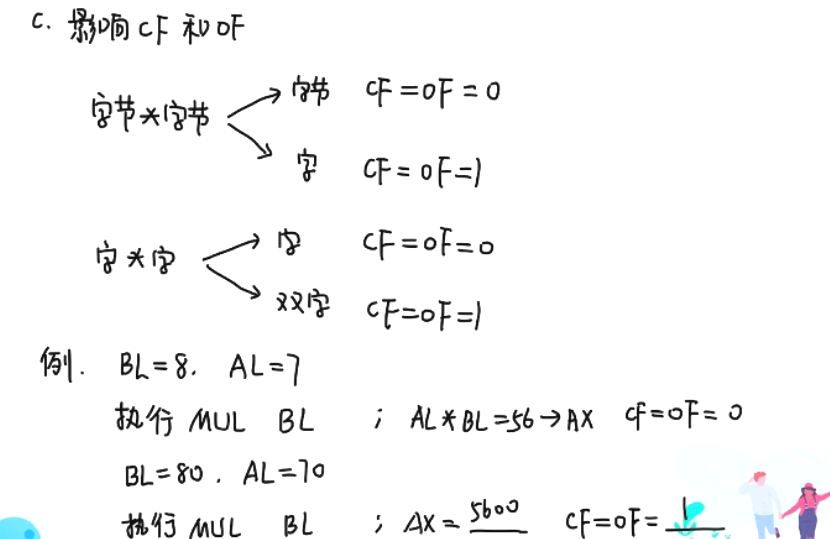 C. 影响 CF 和 OF
字节*字节
字节 CF=OF=0
字 CF=OF=1
字*字
字 CF=OF=0
双字 CF=OF=1
例. BL=8. AL=7
执行 MUL BL ; AL*BL=56→AX CF=OF=0
BL=80. AL=70
执行 MUL BL ; AX=5600 CF=OF=1